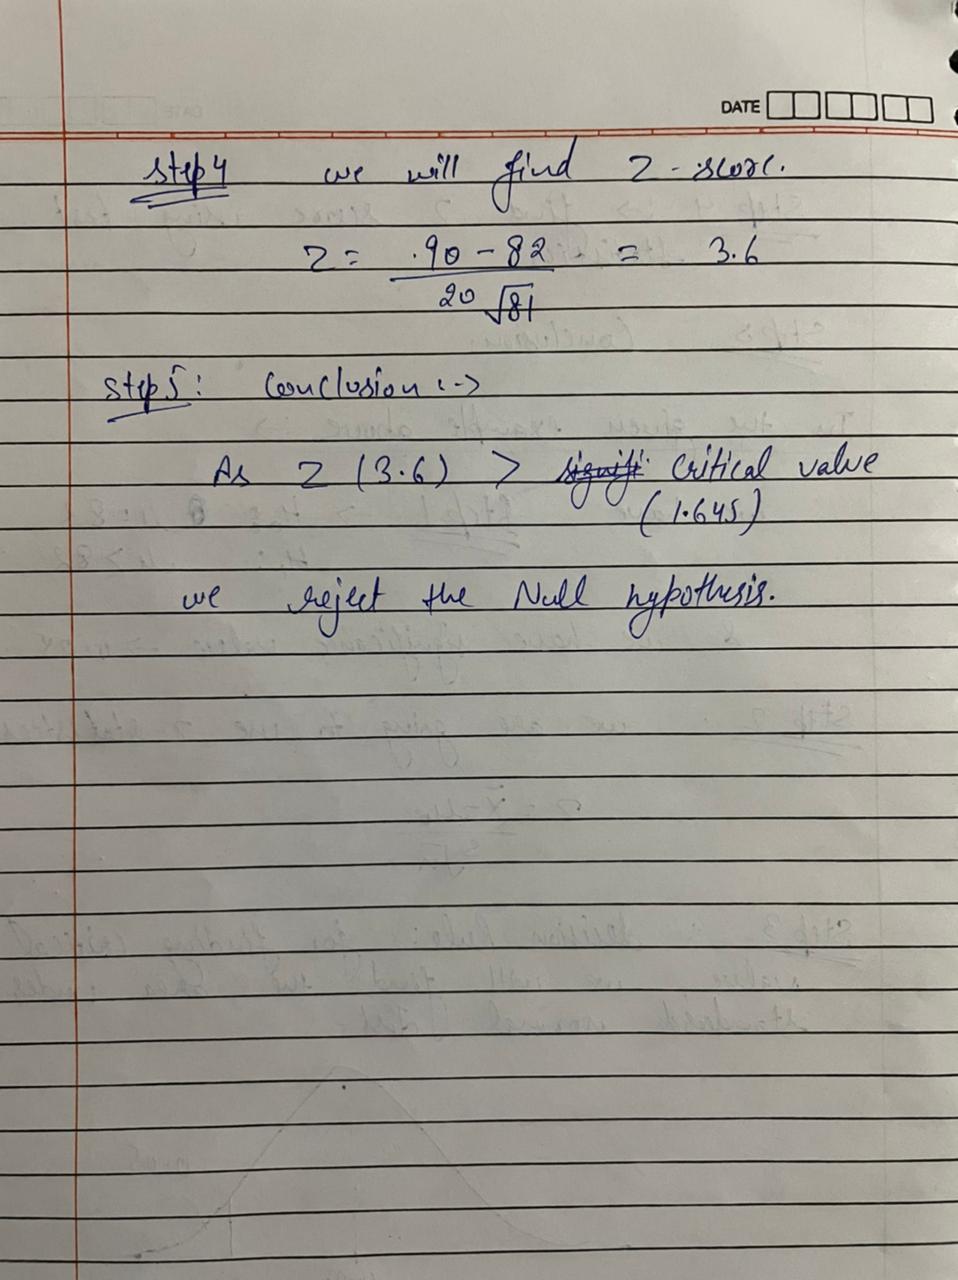 DATE
step 4 we will find Z-score.
Z = .90 - 82 = 3.6
20 √81
step 5: Conclusion :->
As Z (3.6) > signifi critical value
(1.645)
we reject the Null hypothesis.